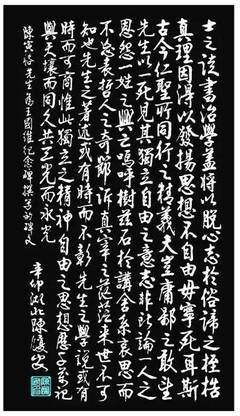 士之读書治學盖将以脱心志於俗谛之桎梏
真理因得以發揚思想不自由毋寧死耳斯
古今仁聖所同行之精義夫豈庸鄙之敢望
先生以一死見其獨立自由之意志非所論一人之
恩怨一姓之興亡嗚呼樹兹石於講舍系哀思而
不忘表哲人之奇節訴真宰之茫茫来世不可
知也先生之著述或有時而不彰先生之學説或有
時而可商惟此獨立之精神自由之思想歷千萬祀
與天壤而同久共三光而永光
陳寅恪先生爲王國維紀念碑撰寫的碑文
辛卯湖北陳